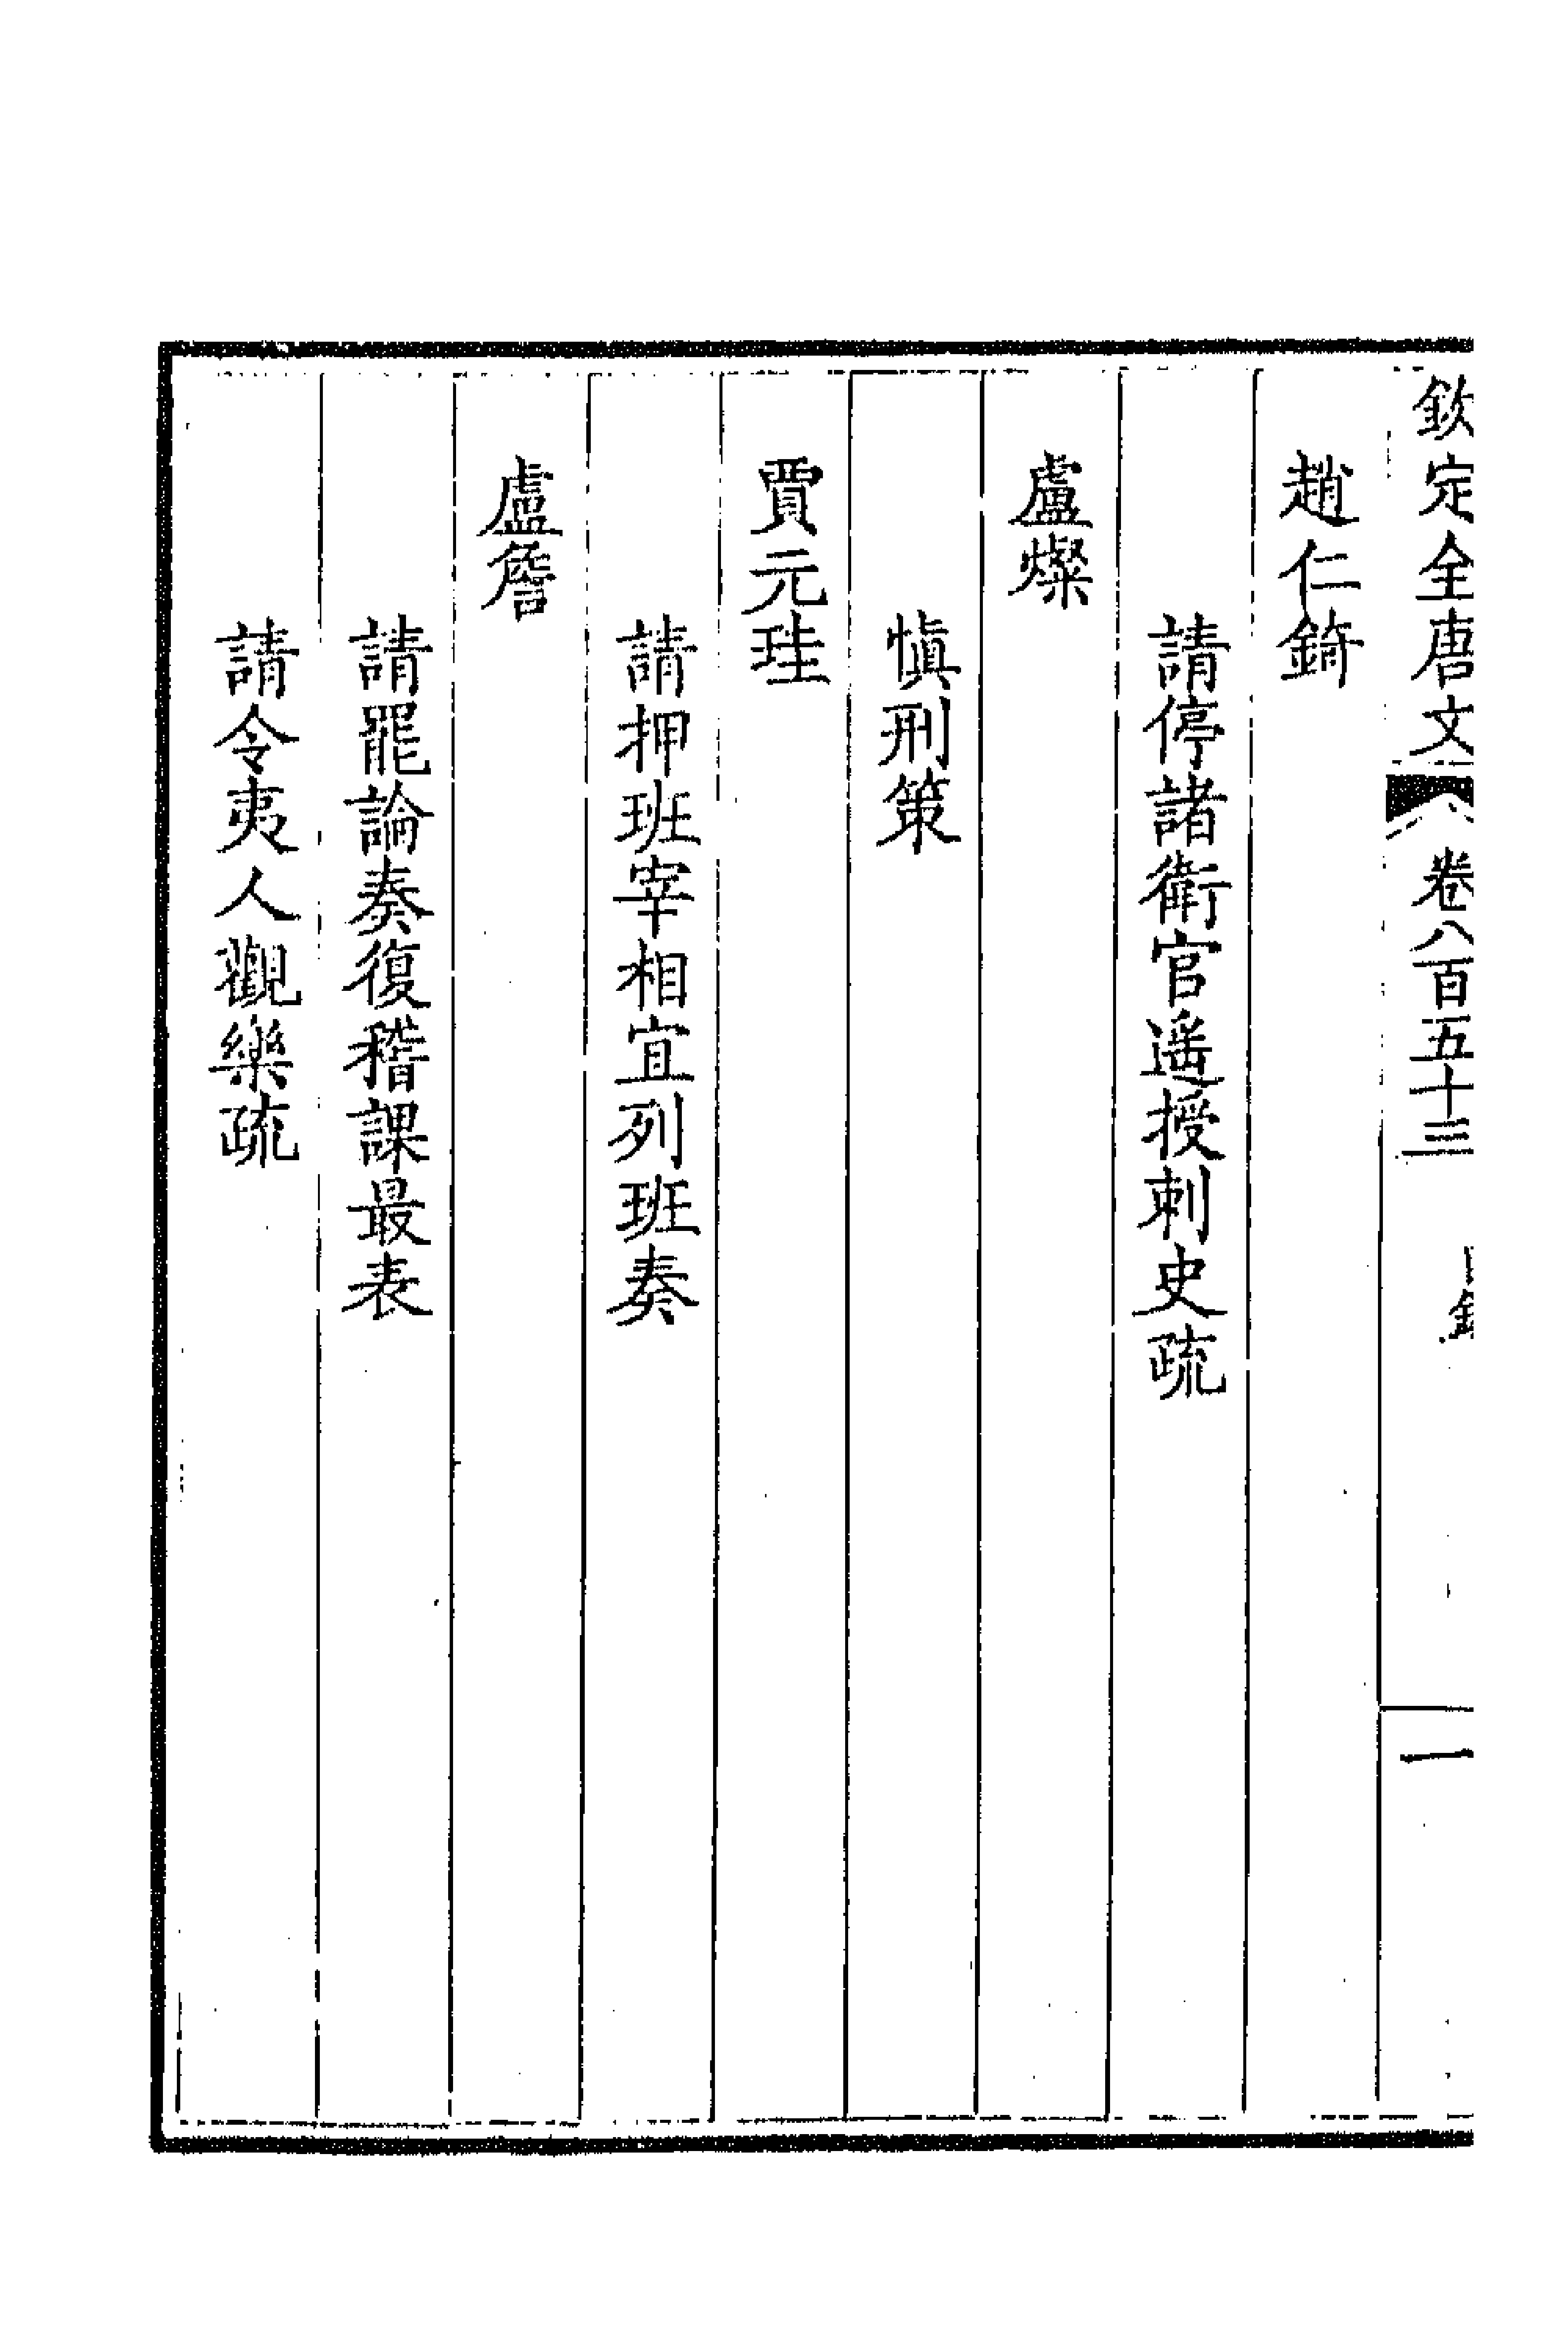 欽定全唐文 卷八百五十三 目錄 一
趙仁錡
請停諸衛官遥授刺史疏
盧燦
慎刑策
賈元珪
請押班宰相宜列班奏
盧詹
請罷論奏復稽課最表
請令夷人觀樂疏